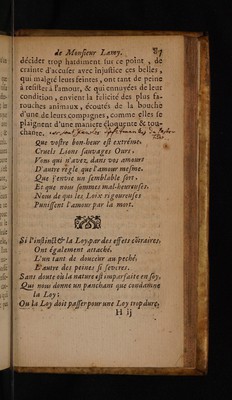 de Monsieur Lamy. 89
décider trop hardiment sur ce point, de
crainte d'accuser avec injustice ces belles,
qui malgré leurs feintes, ont tant de peine
à resister à l'amour, & qui ennuyées de leur
condition, envient la felicité des plus fa-
rouches animaux, écoutés de la bouche
d'une de leurs compagnes, comme elles se
plaignent d'une maniere éloquente & tou-
chante.
Que vostre bon-heur est extrême,
Cruels Lions sauvages Ours,
Vous qui n'avez dans vos amours
D'autre régle que l'amour mesme.
Que j'envie un semblable sort,
Et que nous sommes mal-heureuses,
Nous de qui les Loix rigoureuses
Punissent l'amour par la mort.
Si l'instinct & la Loy, par des effets cõtraires,
Ont également attaché,
L'un tant de douceur au peché,
L'autre des peines si severes.
Sans doute où la nature est imparfaite en soy,
Qui nous donne un panchant que condamne
la Loy;
Ou la Loy doit passer pour une Loy trop dure,
H ij